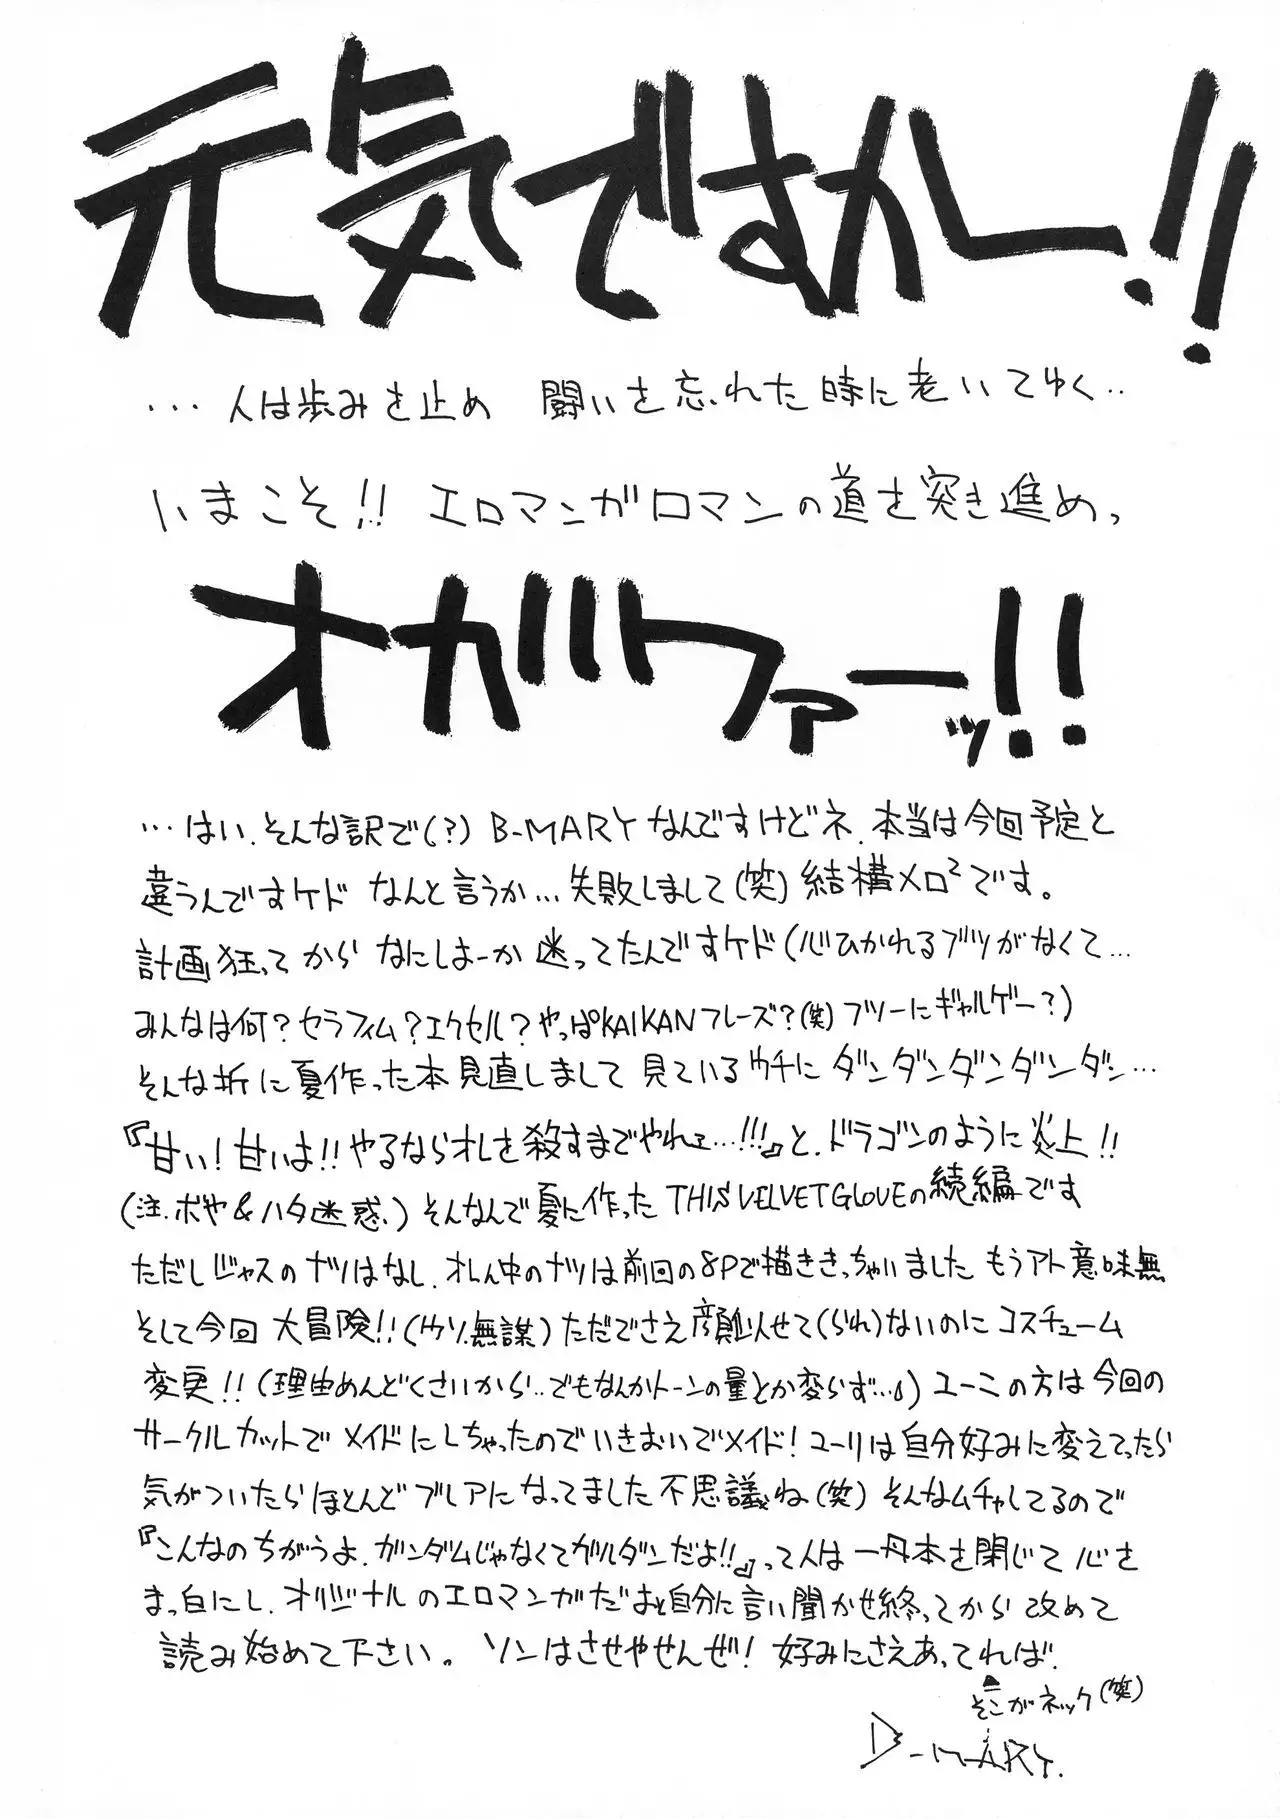 元気ですかー!!
…人は歩みを止め 闘いを忘れた時に老いてゆく…
いまこそ!! エロマンガロマンの道を突き進めっ
オガワァーッ!!
…はい、そんな訳で(?) B-MARYなんですけどネ、本当は今回予定と
違うんですケド なんと言うか…失敗しまして(笑) 結構メロ²です。
計画狂ってから なにしよーか迷ってたんですケド(心ひかれるブツがなくて…
みんなは何?セラフィム?エクセル?やっぱKAIKANフレーズ?(笑) フツーにギャルゲー?)
そんな折に夏作った本見直しまして 見ているウチに ダンダンダンダンダン…
『甘い!甘いよ!!やるならオレを殺すまでやれェ…!!!』と、ドラゴンのように炎上!!
(注.ボヤ&ハタ迷惑.) そんなんで夏に作った THIS VELVET GLOVEの続編です
ただしジャスのナツはなし、オレん中のナツは前回の8Pで描ききっちゃいました もうアト意味無
そして今回 大冒険!!(ウソ.無謀) ただでさえ顔似せて(られ)ないのに コスチューム
変更!!(理由めんどくさいから…でもなんかトーンの量とか変らず…) ユーミの方は今回の
サークルカットで メイドにしちゃったのでいきおいでメイド! ユーリは自分好みに変えてったら
気がついたらほとんどブレアになってました 不思議ね(笑) そんなムチャしてるので
『こんなのちがうよ、ガンダムじゃなくてガルダンだよ!!』って人は 一旦本を閉じて 心を
まっ白にし、オリジナルのエロマンガだよと自分に言い聞かせ終ってから 改めて
読み始めて下さい。 ソンはさせやせんぜ! 好みにさえあってれば.
そこがネック(笑)
B-MARY.